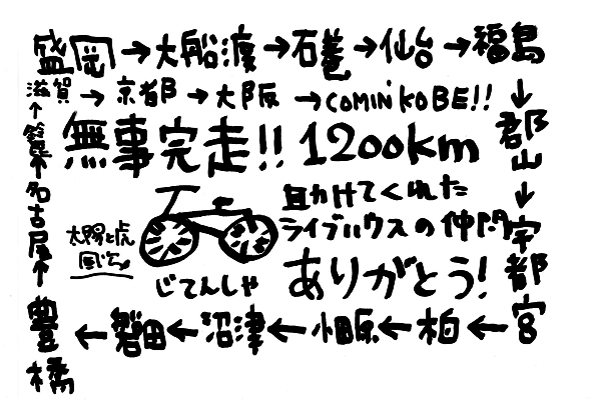 盛岡→大船渡→石巻→仙台→福島
↓
郡山
↓
宇都宮
←柏←小田原←沼津←磐田←
豊橋
↑
名古屋
↑
鈴鹿
↑
滋賀→京都→大阪→COMIN'KOBE!!
無事完走!! 1200km
助けてくれた
ライブハウスの仲間
ありがとう!
太陽と虎
風次
じてんしゃ